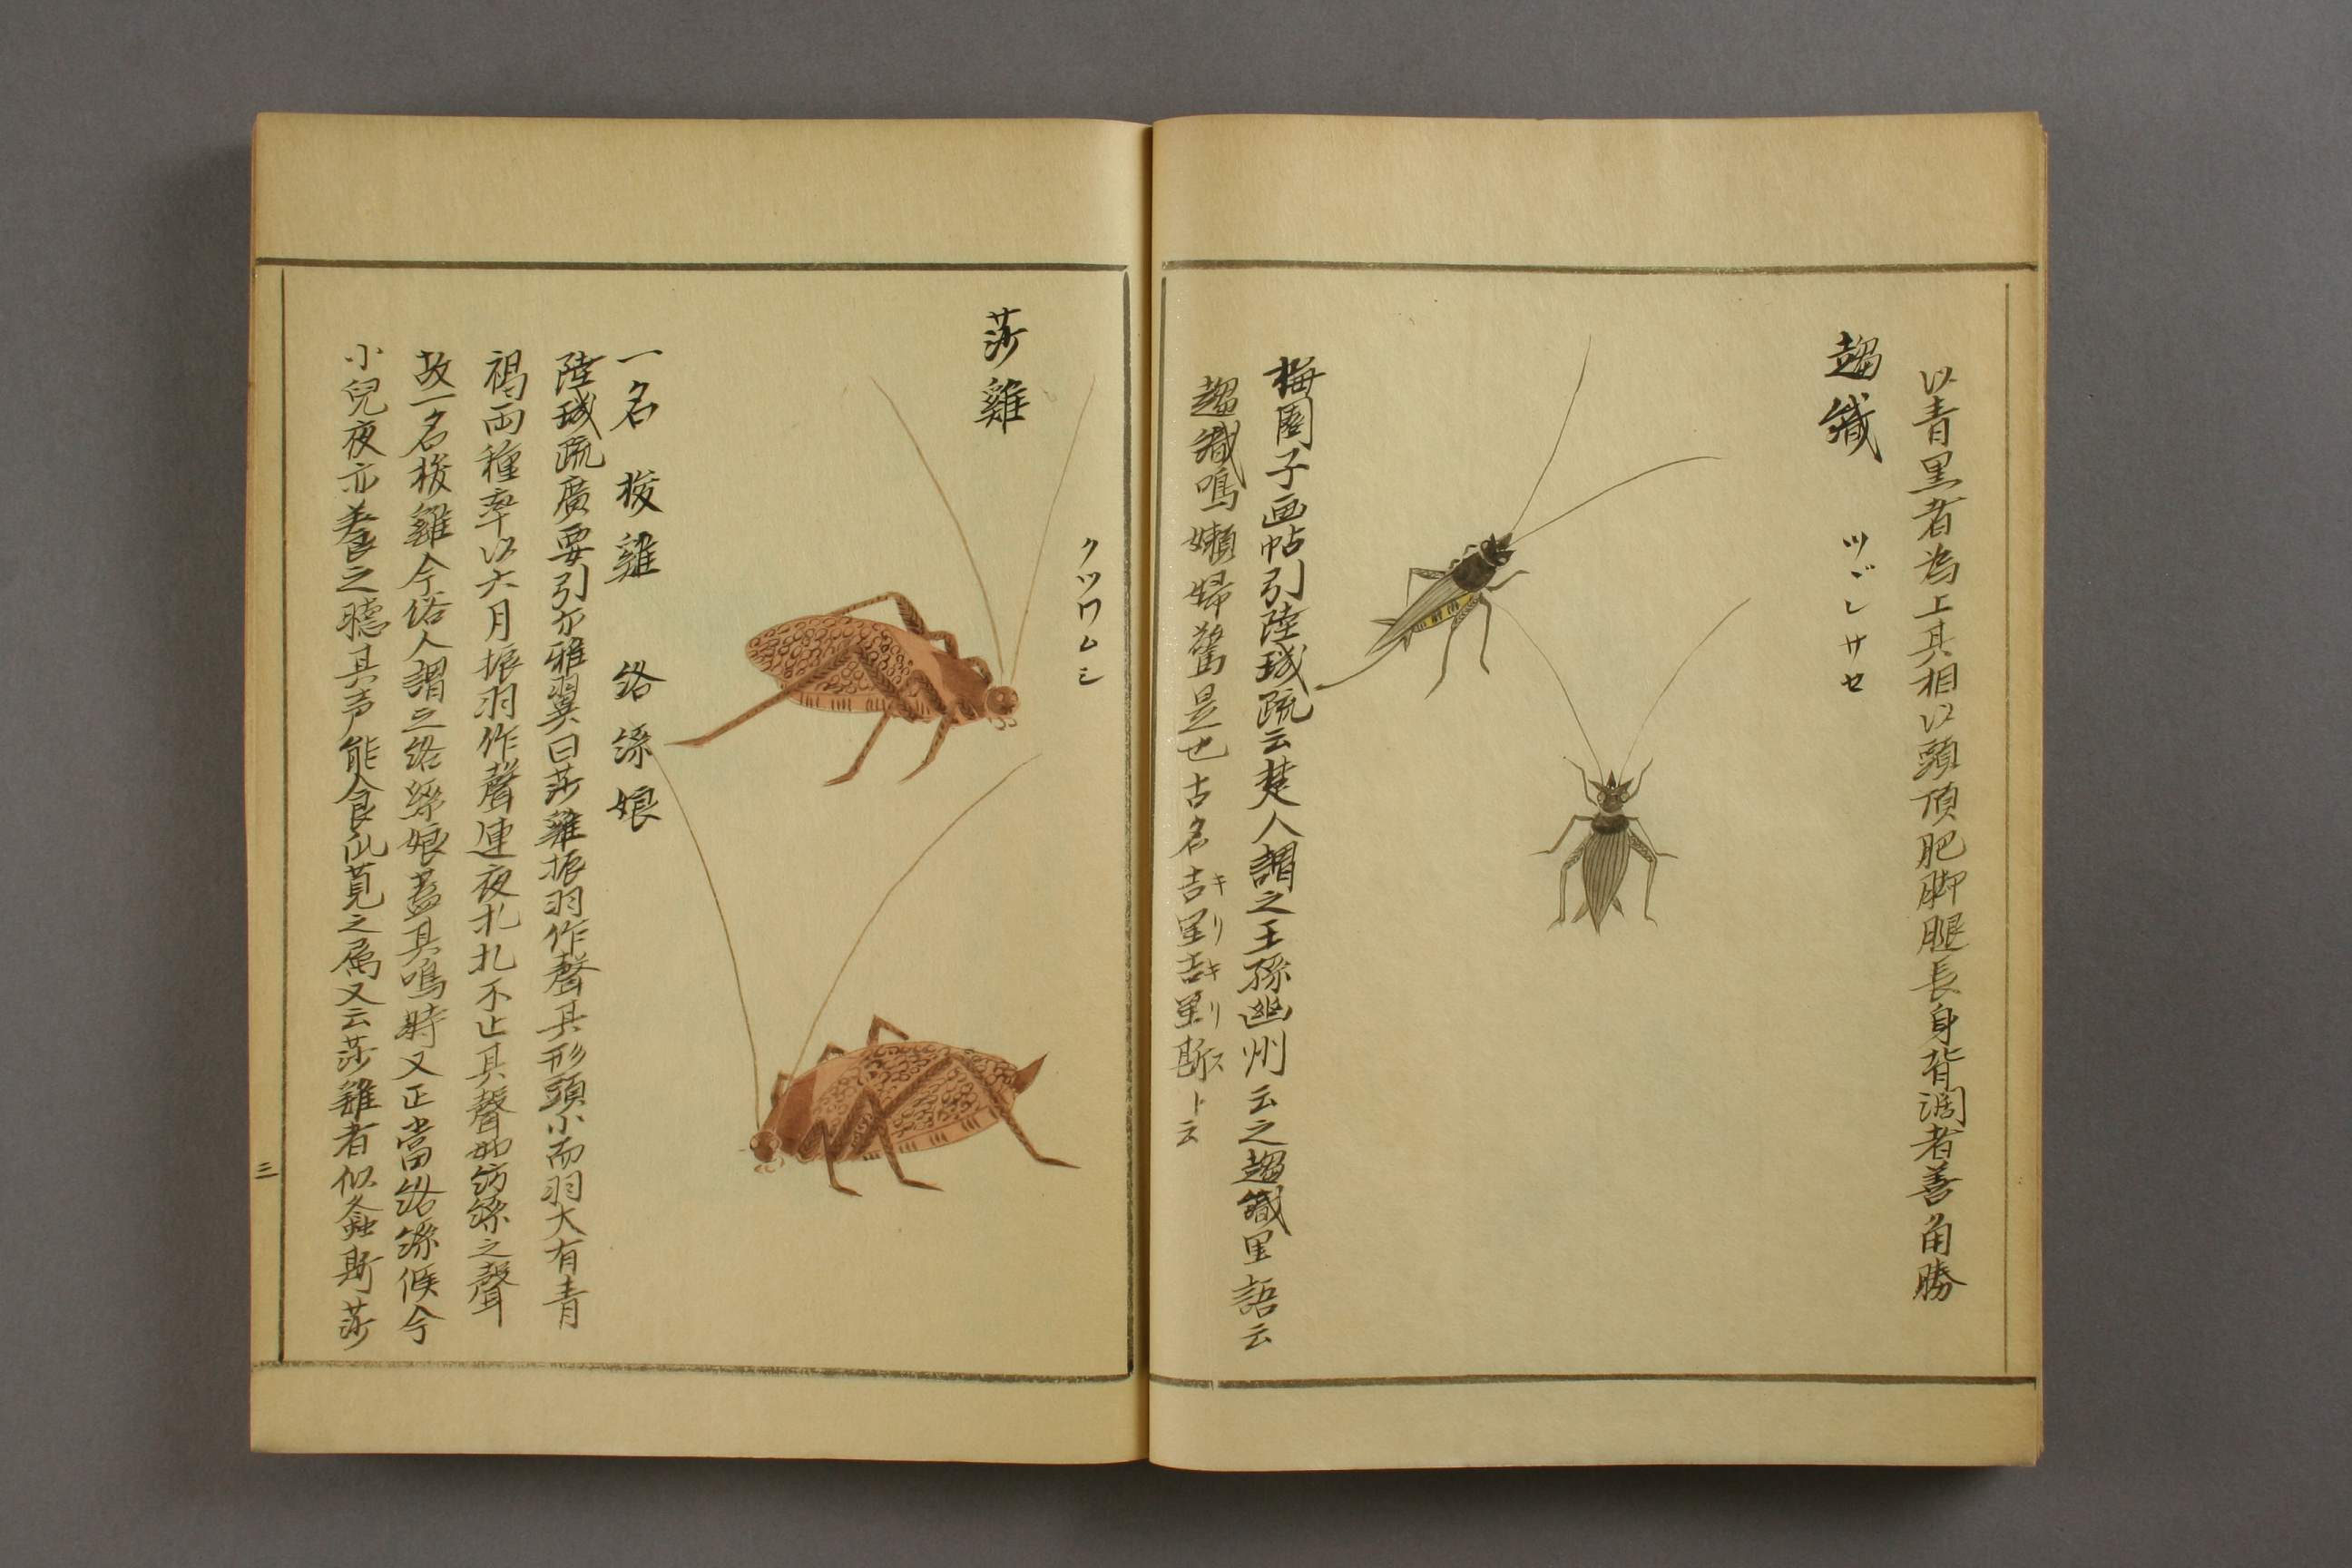 以青黒者為上其相以頭頂肥脚腿長身背濶者善角勝
趨織 ツヾレサセ
梅園子画帖引陸璣疏云楚人謂之王孫幽州云之趨織里語云
趨織鳴嬾婦驚是也古名吉里吉里斯ト云
キリキリス
莎雞 クツワムシ
一名 梭雞 絡緯娘
陸璣疏廣要引尓雅翼曰莎雞振羽作聲其形頭小而羽大有青
褐両種率以六月振羽作聲連夜札札不止其聲如紡絲之聲
故一名梭雞今俗人謂之絡緯娘蓋其鳴時又正當絡絲候今
小兒夜亦養之聴其声能食瓜莧之属又云莎雞者似螽斯莎
三